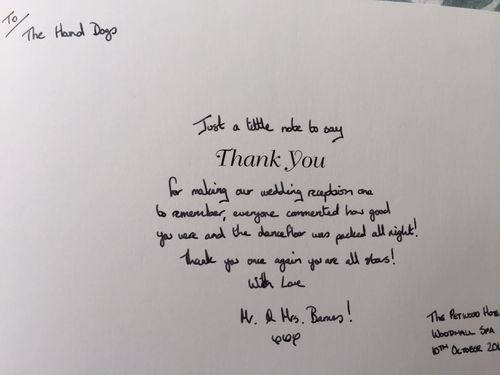 To/
The Hand Dogs
Just a little note to say
Thank You
For making our wedding reception one
to remember, everyone commented how good
you were and the dancefloor was packed all night!
Thank you once again you are all stars!
With Love
Mr. & Mrs. Barnes!
The Petwood Hote
Woodhall Spa
10th October 201